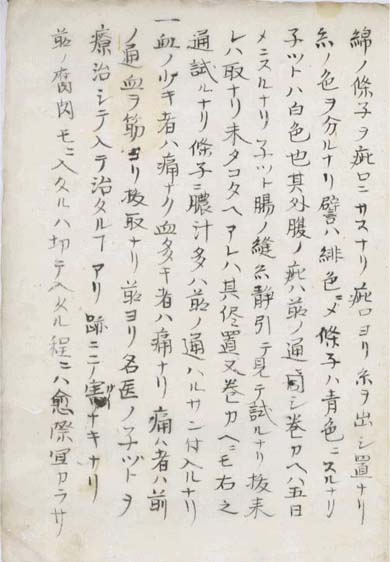 綿ノ條子ヲ疵口ニサスナリ疵口ヨリ糸ヲ出シ置ナリ
糸ノ色ヲ分ルナリ譬ハ緋色ニメ條子ハ青色ニスルナリ
子ツトハ白色也其外腹ノ疵ハ前ノ通リ巻カヘハ五日
メニスルナリ子ツト腸ノ縫糸静引テ見テ試ルナリ抜来
レハ取ナリ未タコタヘアレハ其侭置又巻カヘニモ右之
通試ルナリ條子ニ膿汁多ハ前ノ通ハルサン付入ルナリ
一血ノ少キ者ハ痛ナリ血多キ者ハ痛ナリ痛ハ者ハ前
ノ通血ヲ筋ヨリ抜取ナリ前ヨリ名医ノ子ツトヲ
療治シテ入テ治タルヿアリ跡ニテノ害ナキナリ
前ノ腐肉モニ入タルハ切テ入メル程ニハ愈際宜カラサ